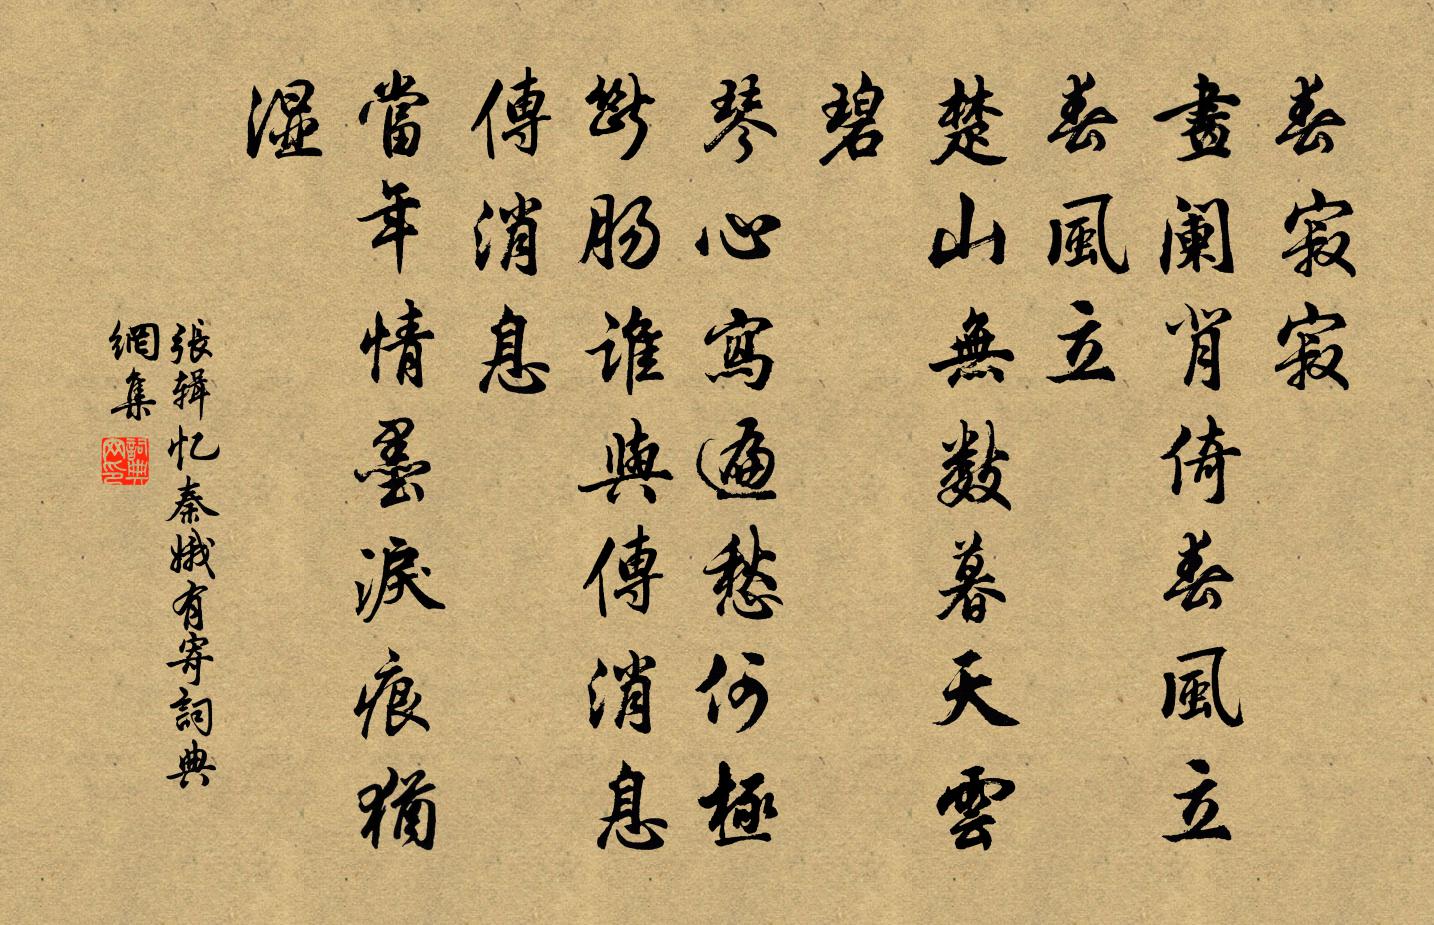 春寂寂
畫阑肖倚春風立
春風立
楚山無數暮天雲
碧
琴心寫遍愁何極
斷腸谁與傳消息
傳消息
當年情墨淚痕猶
濕
張辑忆秦娥有寄詞典
網集
詞典网印